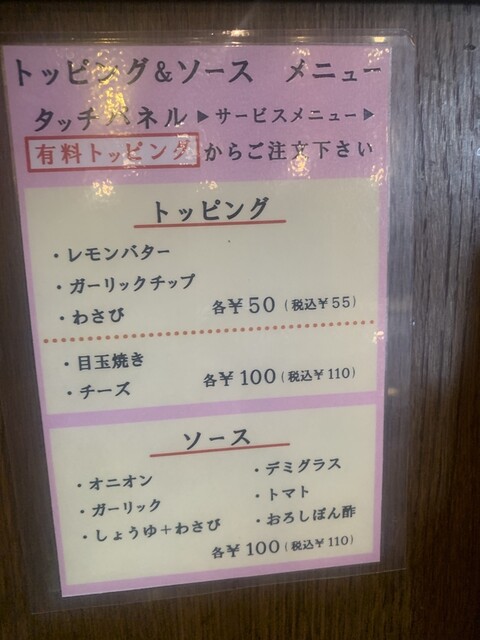 トッピング＆ソース メニュー
タッチパネル▶サービスメニュー▶
有料トッピングからご注文下さい
トッピング
・レモンバター
・ガーリックチップ
・わさび
各￥50（税込￥55）
・目玉焼き
・チーズ
各￥100（税込￥110）
ソース
・オニオン
・ガーリック
・しょうゆ＋わさび
・デミグラス
・トマト
・おろしぽん酢
各￥100（税込￥110）